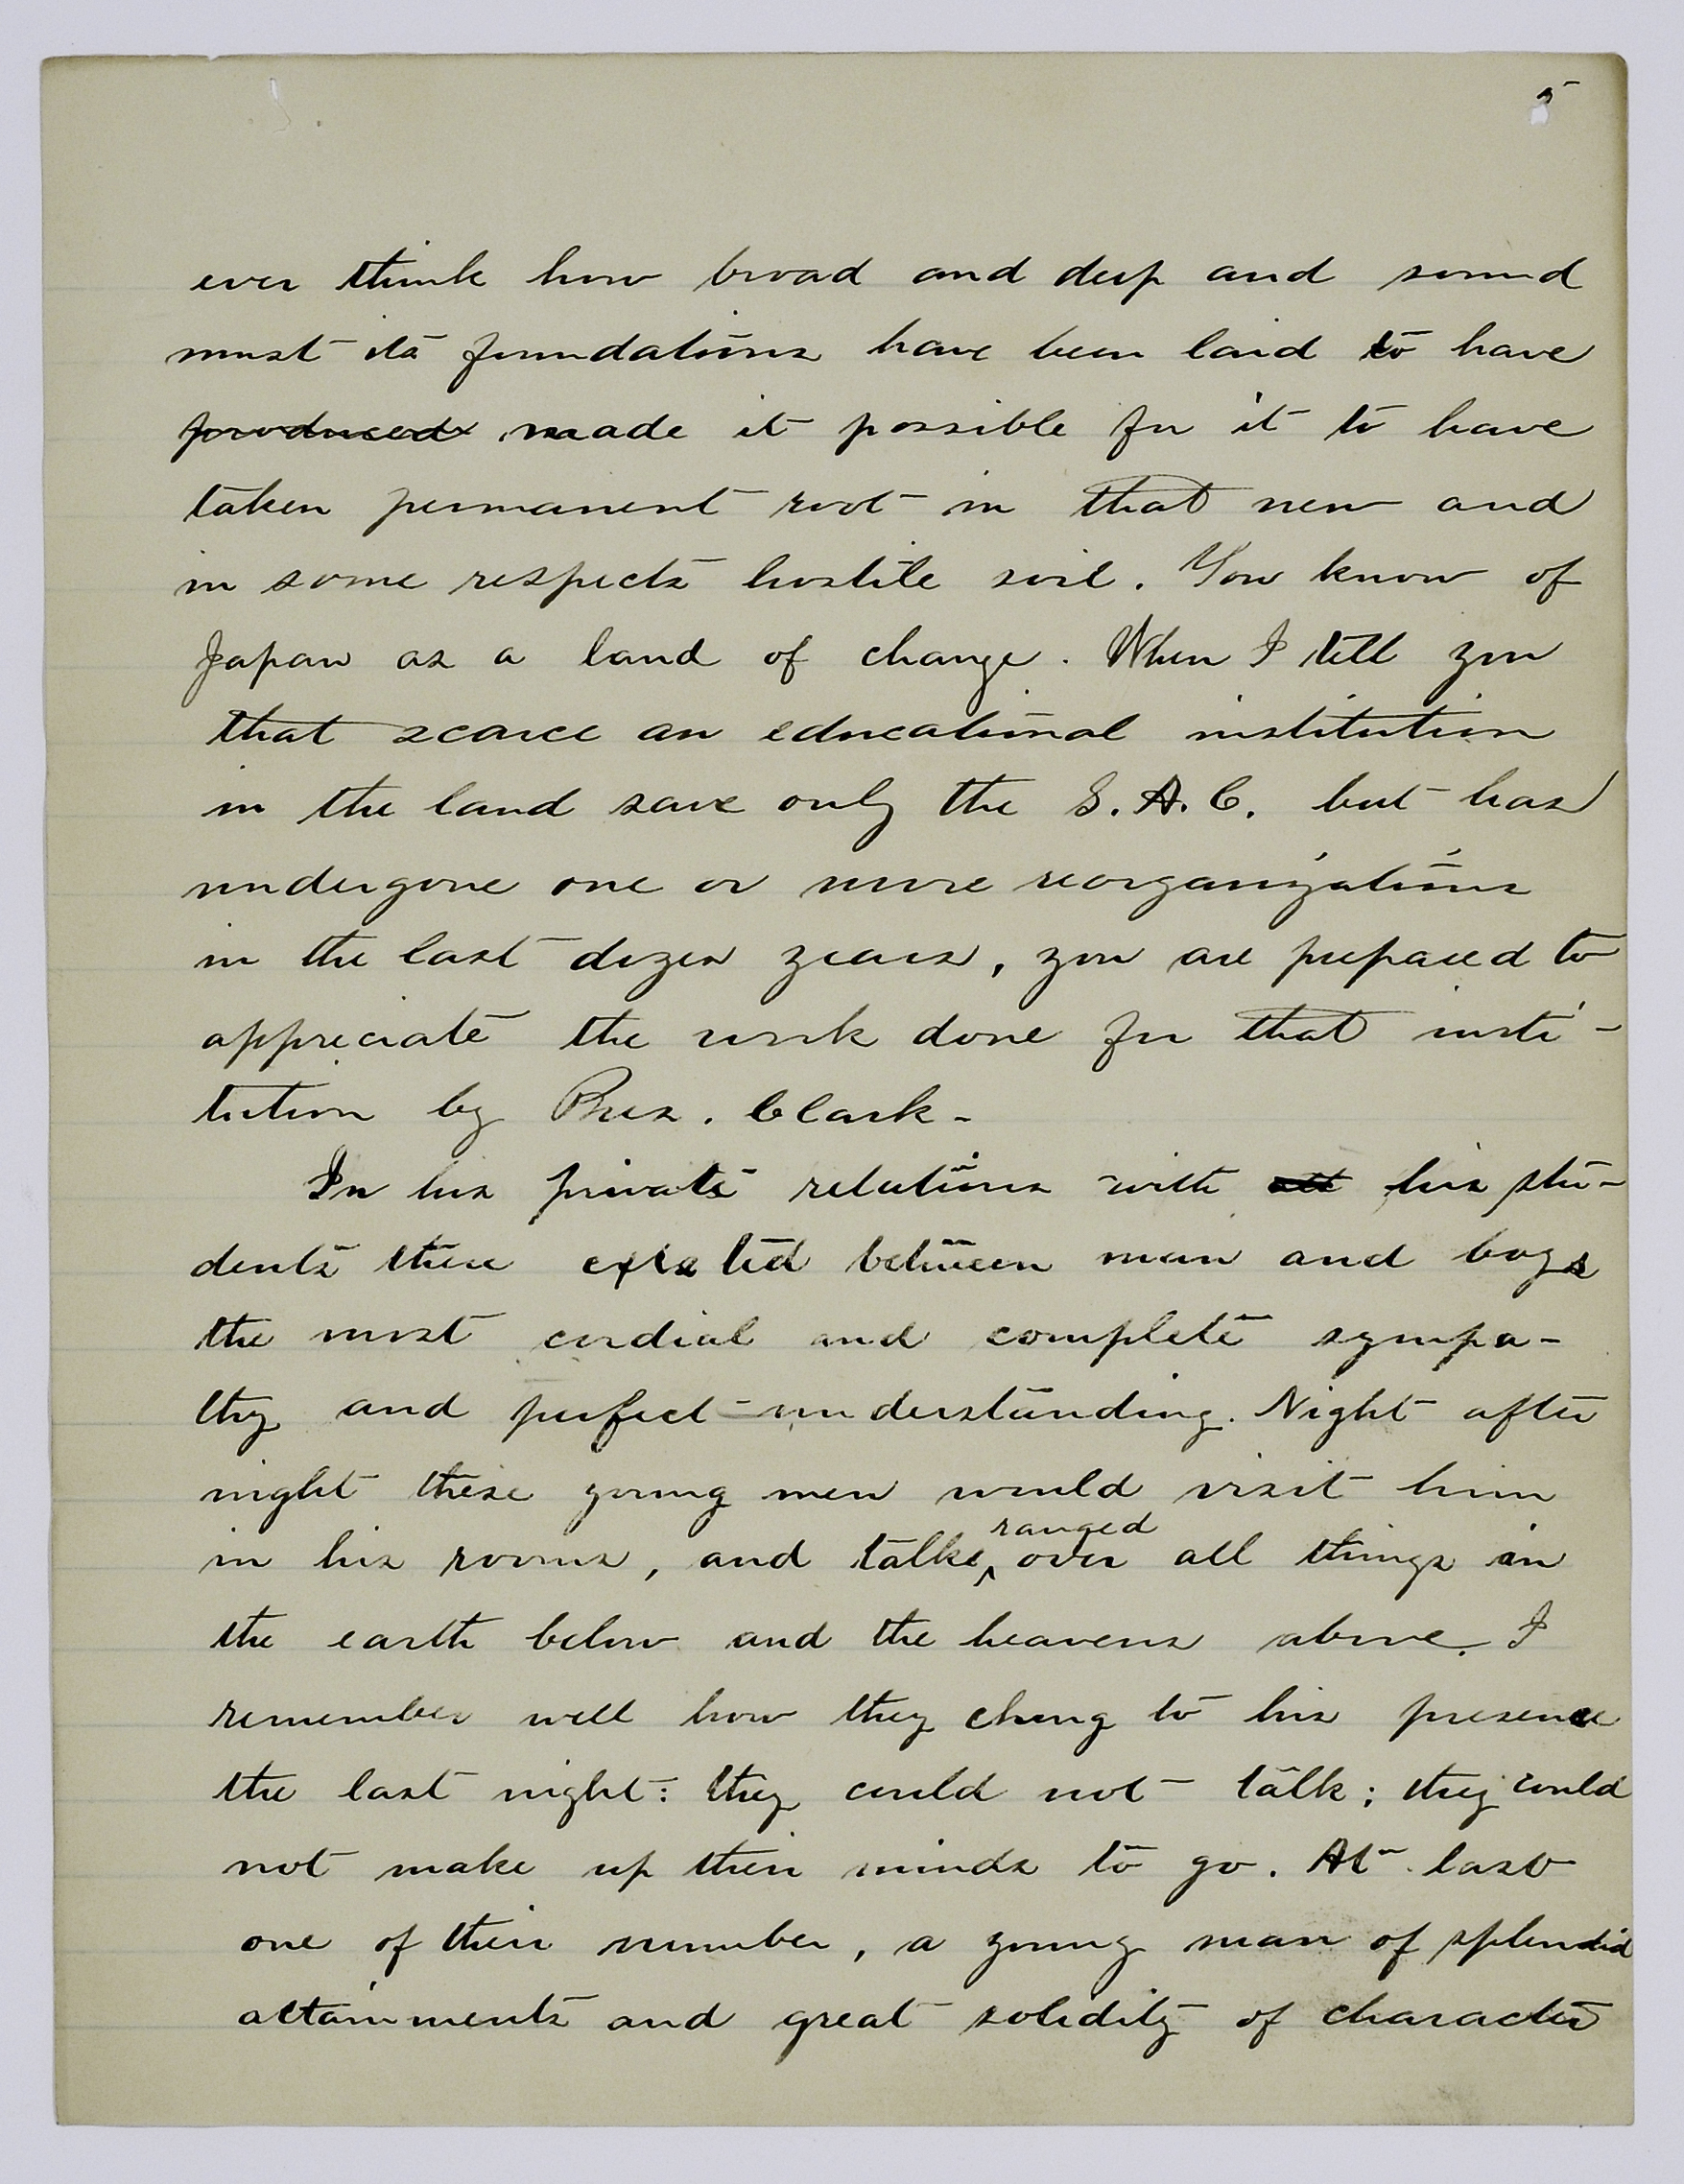 5
ever think how broad and deep and sound
must its foundations have been laid to have
produced made it possible for it to have
taken permanent root in that new and
in some respects hostile soil. You know of
Japan as a land of change. When I tell you
that scarce an educational institution
in the land save only the S. A. C. but has
undergone one or more reorganizations
in the last dozen years, you are prepared to
appreciate the work done for that insti-
tution by Pres. Clark-
In his private relations with all his stu-
dents there existed between man and boys
the most cordial and complete sympa-
thy and perfect understanding. Night after
night these young men would visit him
ranged
in his rooms, and talks over all things in
the earth below and the heavens above. I
remember well how they clung to his presence
the last night: they could not talk; they could
not make up their minds to go. At last
one of their number, a young man of splendid
attainments and great solidity of character